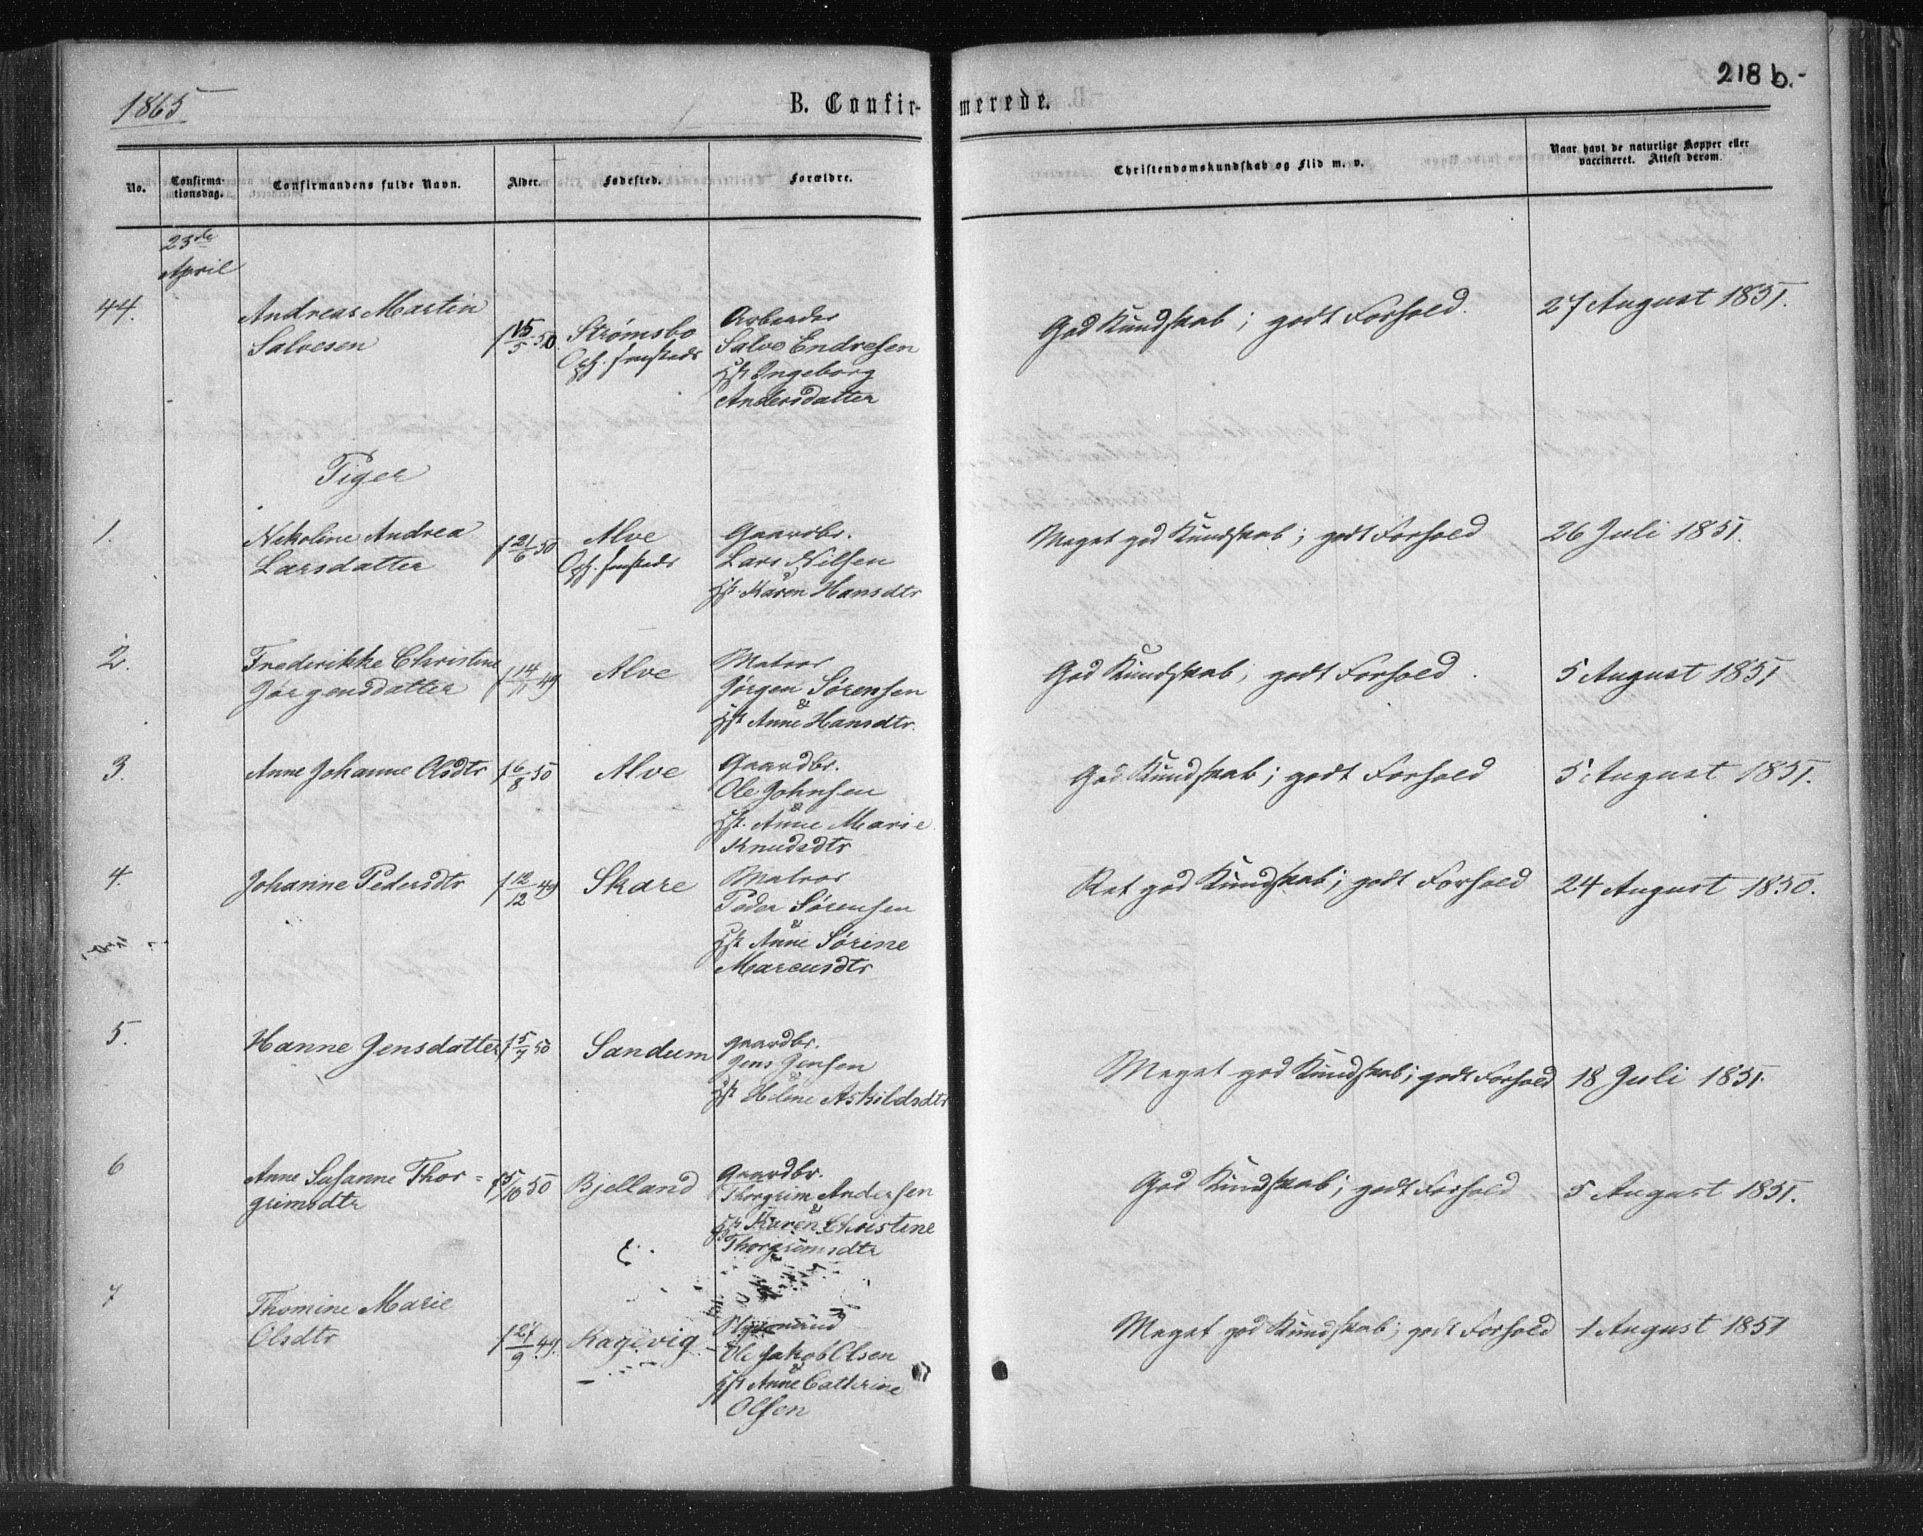 1865
B. Confirmerede.
218 b.
No.
Confirmationsdag.
Confirmandens fulde Navn.
Alder.
Fødested.
Forældre.
Christendomskundskab og Flid m. v.
Naar havt de naturlige Kopper eller
vaccineret. Attest derom.
23de
April
44. Andreas Martin
Salvesen
15/5 50
Strømsbo
Arbeider
Salve Endresen
Ingeborg
Andersdatter
God Kundskab; godt Forhold.
27 August 1851.
Piger
1. Nikoline Andrea
Larsdatter
21/6 50
Alve
Gaardbr.
Lars Nilsen
& Karen Hansdtr
Meget god Kundskab; godt Forhold
26 Juli 1851.
2. Frederikke Christine
Jørgensdatter
14/11 49
Alve
Matros
Jørgen Sørensen
& Anne Hansdtr.
God Kundskab; godt Forhold.
5 August 1851
3. Anne Johanne Olsdtr
6/8 50
Alve
Gaardbr.
Ole Johnsen
& Anne Marie
Knudsdtr
God Kundskab; godt Forhold
5 August 1851.
4. Johanne Pedersdtr
12/12 49
Skare
Matros
Peder Sørensen
& Anne Sørine
Marcusdtr
Ret god Kundskab; godt Forhold
24 August 1850.
5. Hanne Jensdatter
5/7 50
Sandum
gaardbr.
Jens Jensen
& Helene Askildsdtr
Meget god Kundskab; godt Forhold
18 Juli 1851.
6 Anne Susanne Thor=
grimsdtr
5/10 50
Bjelland
Gaardbr.
Thorgrim Andersen
& Karen Christine
Thorgrimsdtr
God Kundskab; godt Forhold
5 August 1851.
7 Thomine Marie
Olsdtr
27/9 49.
Kagevig
Ole Jakob Olsen
& Anne Cathrine
Olsen
Meget god Kundskab; godt Forhold
1 August 1851